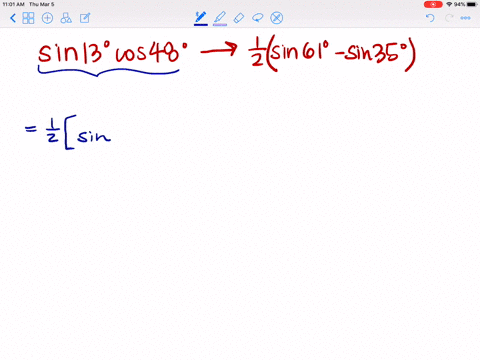 11:01 AM Thu Mar 5 94%
sin13° cos48° → 1/2(sin61° - sin35°)
= 1/2[sin